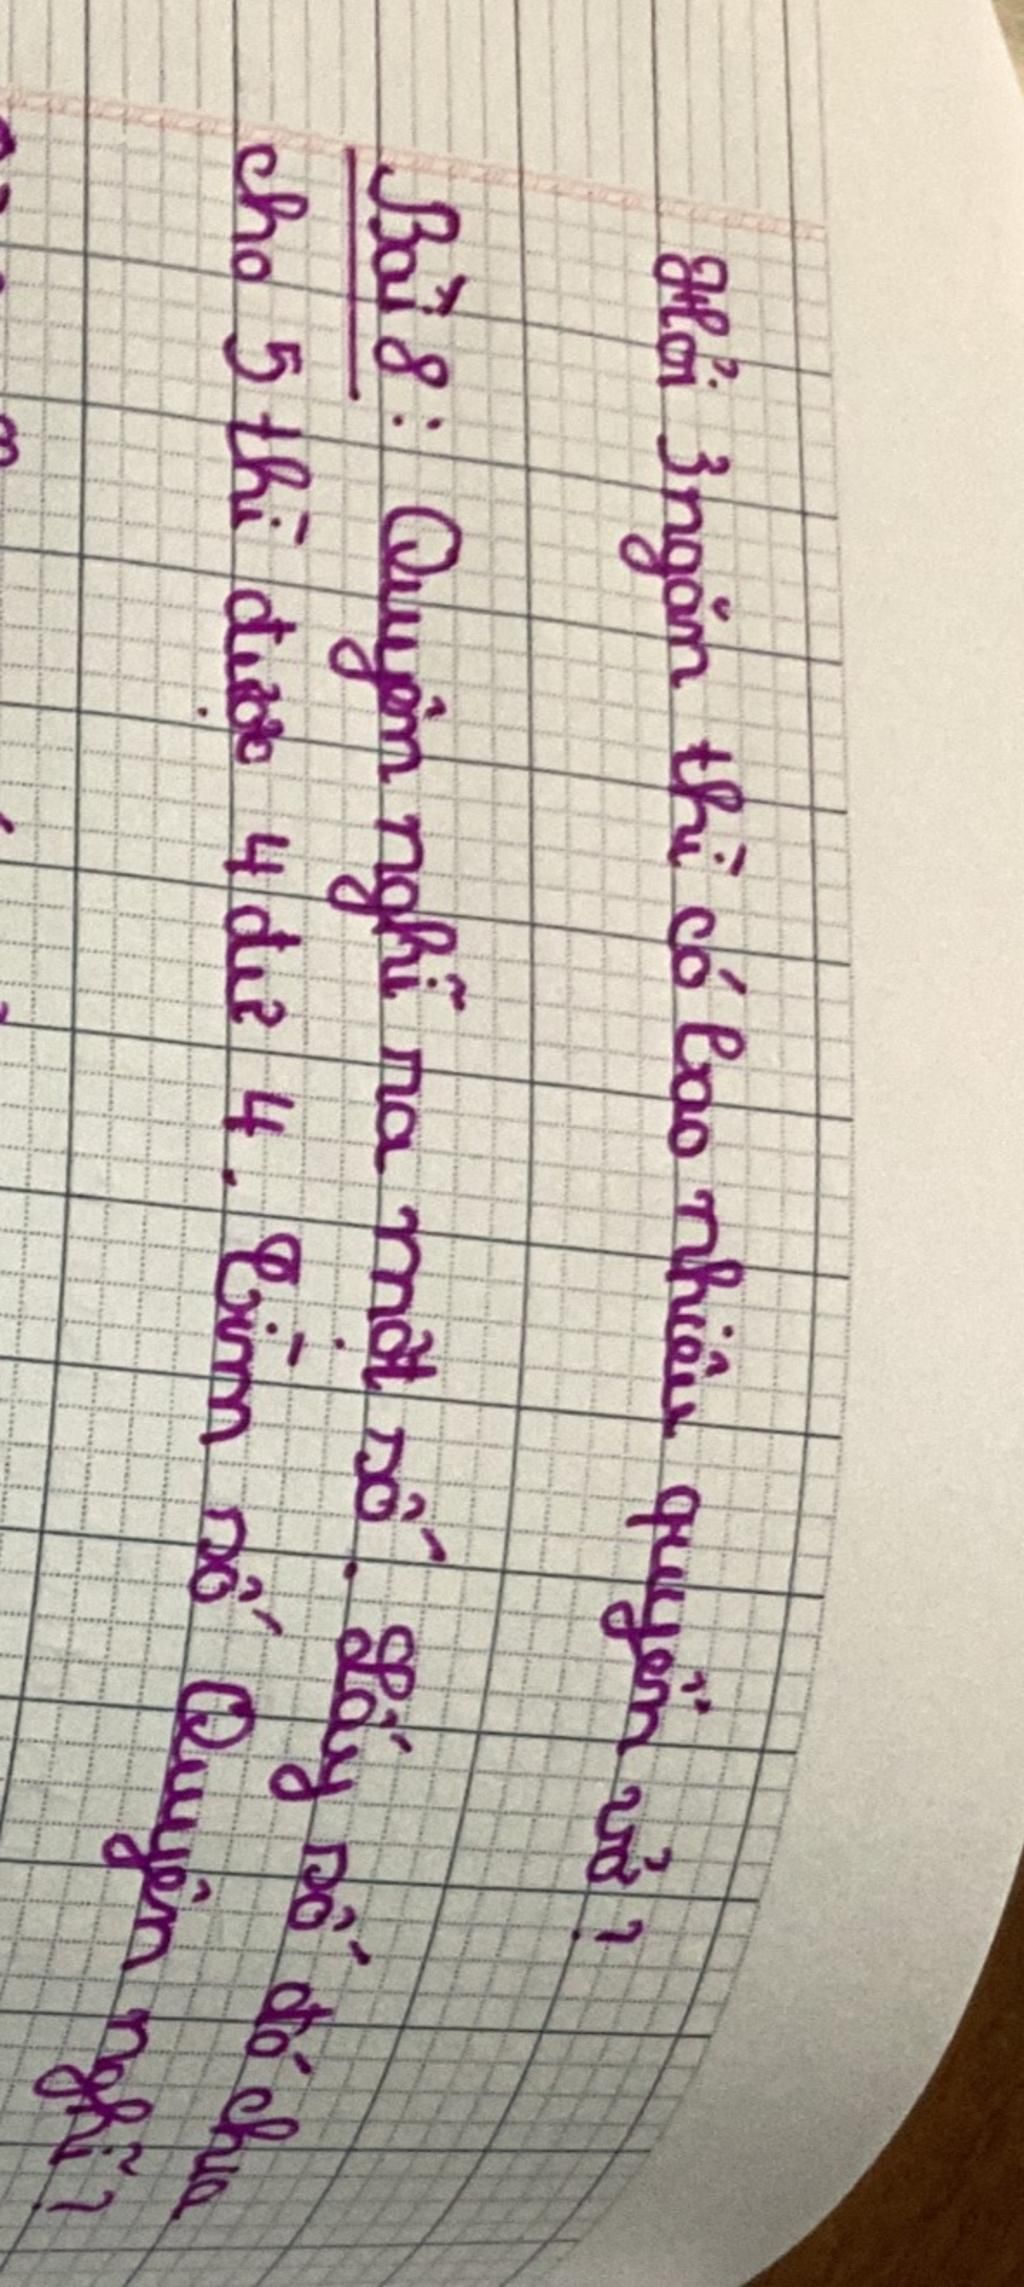 Hỏi 3 ngăn thì có bao nhiêu quyển vở?
Bài 8: Quyên nghĩ ra một số. Lấy số đó chia
cho 5 thì được 4 dư 4. Tìm số Quyên nghĩ?